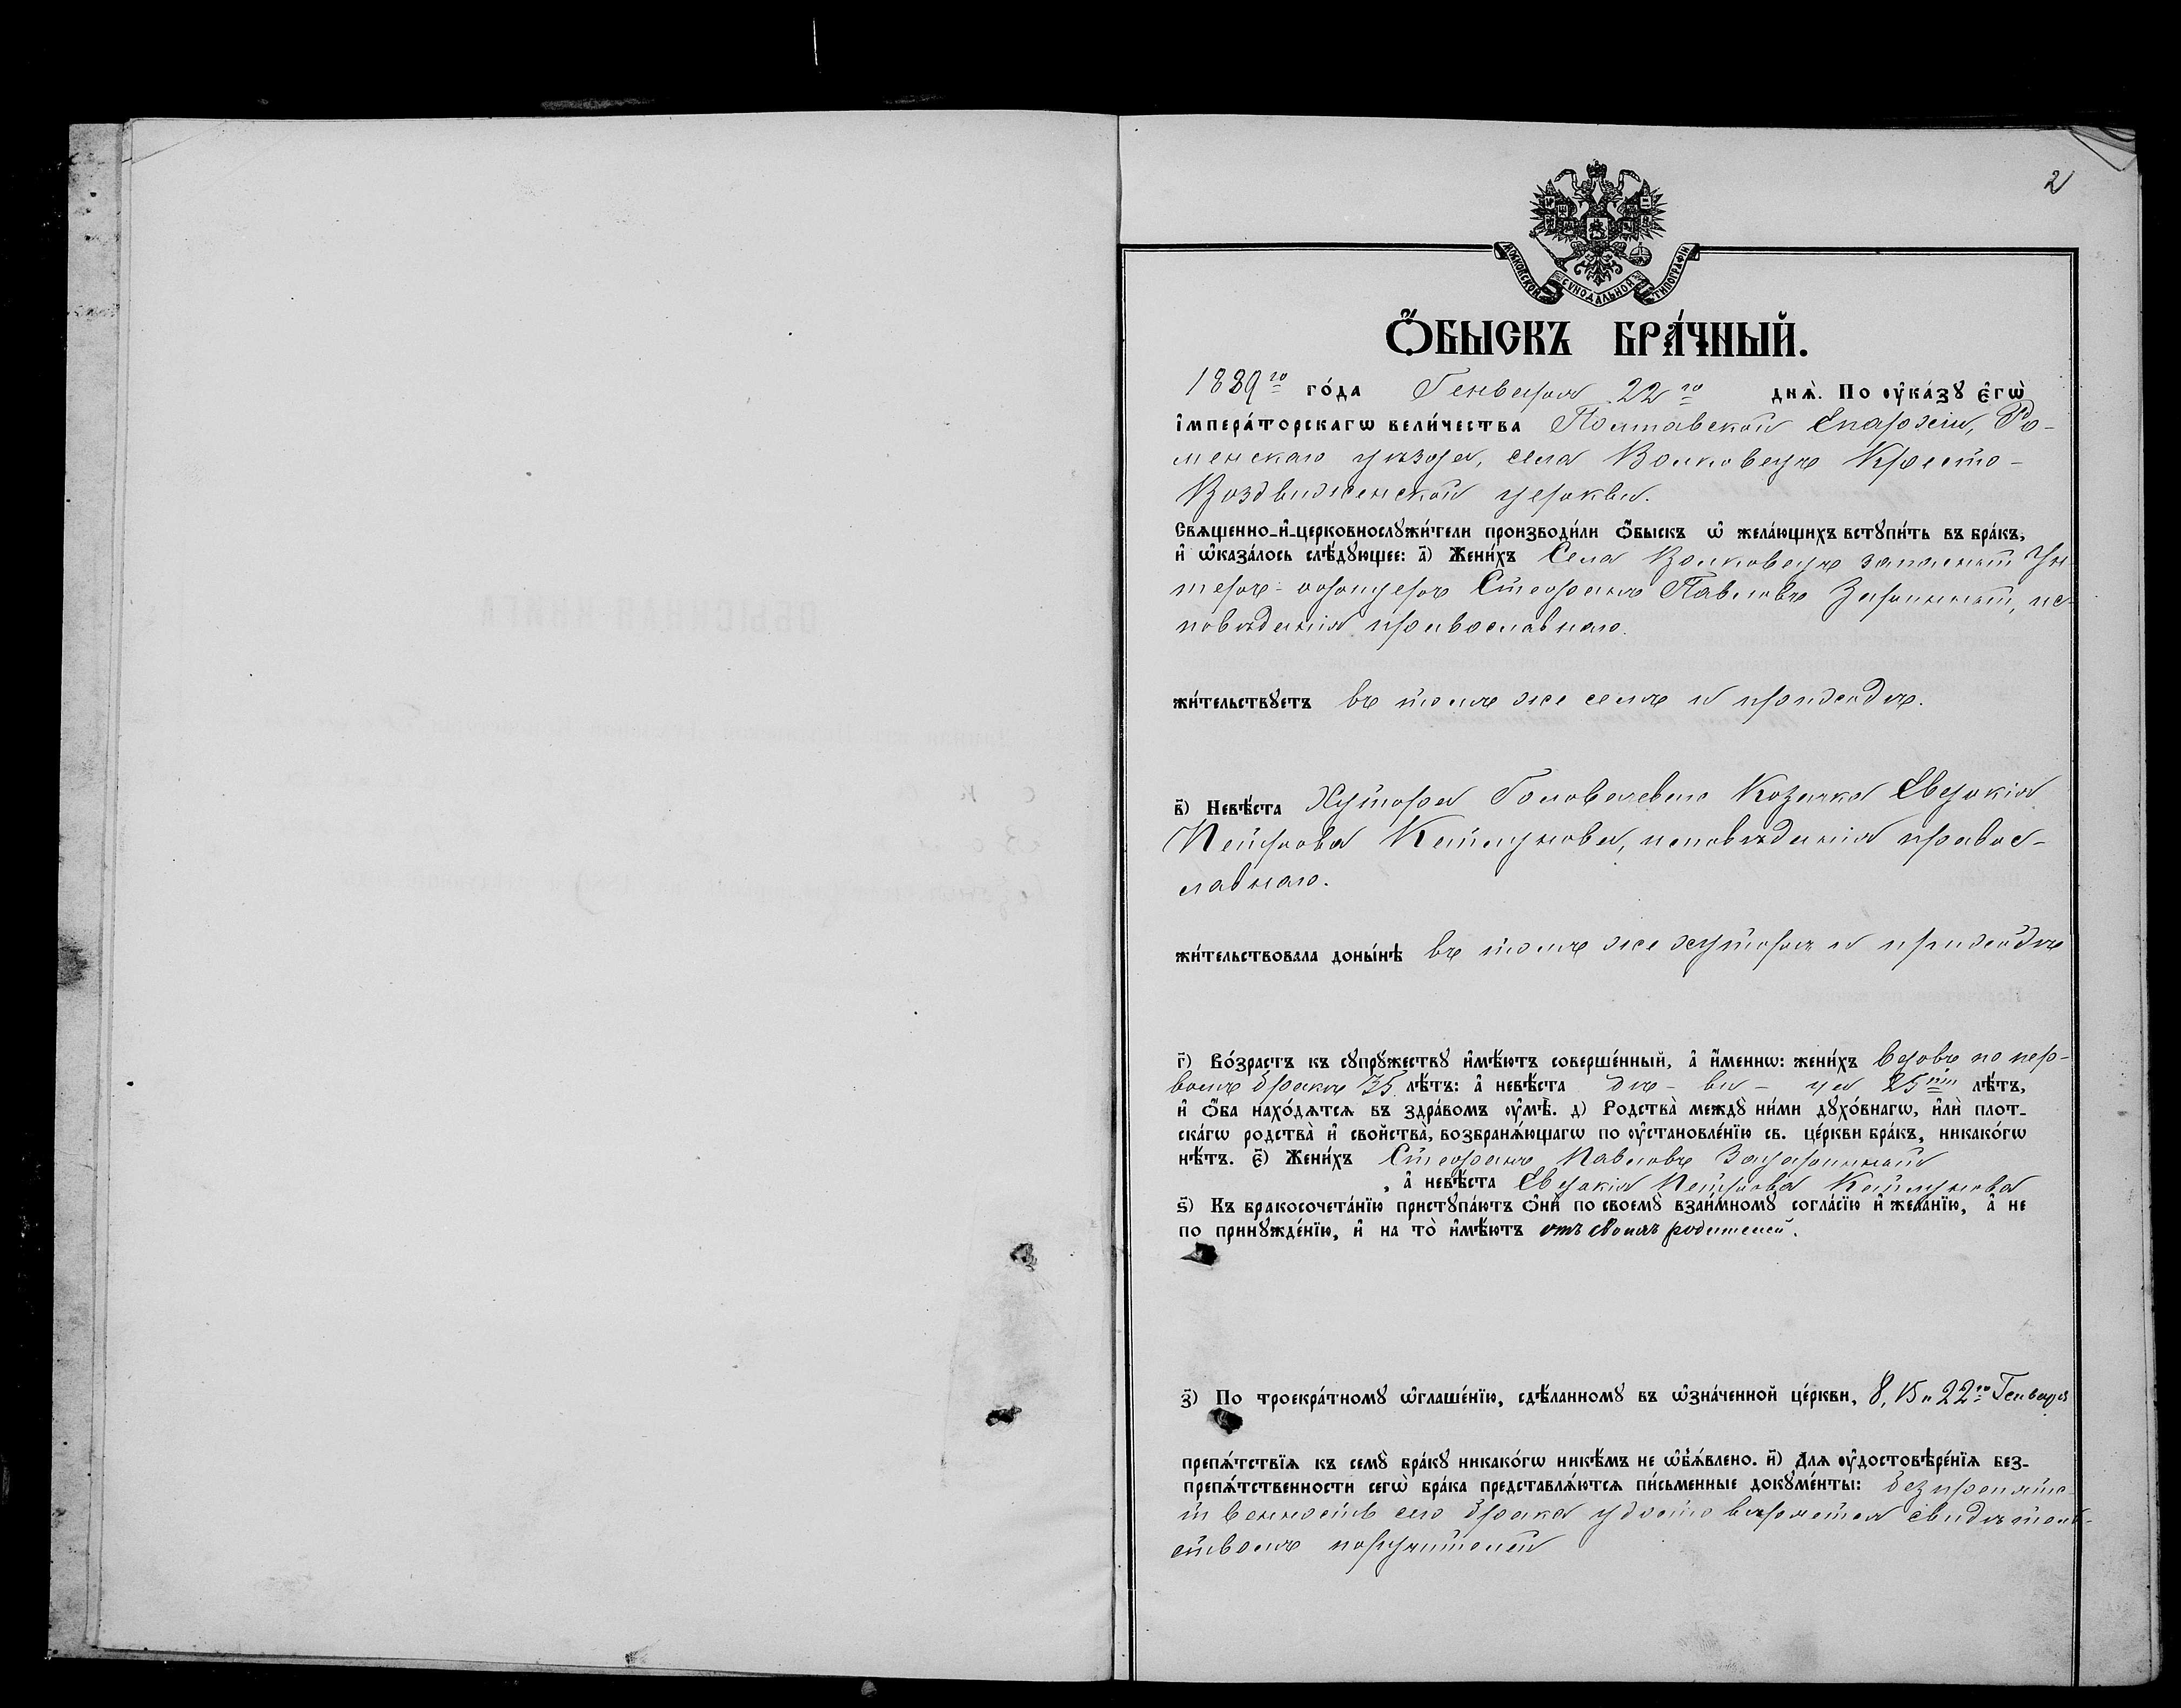 2
МОСКОВСКОЙ СѴНОДАЛЬНОЙ ТИПОГРАФІИ
Ѻ҆́БЫСКЪ БРА́ЧНЫЙ.
1889го го́да Генваря 22го днѧ̀. По ᲂу҆ка́зꙋ є҆гѡ̀
і҆мпера́торскагѡ вели́чества Полтавской Епархіи, Ро-
менскаго уѣзда, села Волковецъ Кресто-
Воздвиженской церкви.
Свѧщенно-и҆-церковнослꙋжи́тели производи́ли ѻ҆́быскъ ѡ҆ жела́ющихъ встꙋпи́ть въ бра́къ,
и҆ ѡ҆каза́лось слѣ́дꙋющее: а҃) Жени́хъ Села Волковецъ запасный Ун-
теръ-офицеръ Стефанъ Павловъ, ис-
повѣданія православнаго.
жи́тельствꙋетъ въ томъ же селѣ и приходѣ.
в҃) Невѣ́ста Хутора Козачка Евдокія
Петрова, исповѣданія правос-
лавнаго.
жи́тельствовала доны́нѣ въ томъ же хуторѣ и приходѣ
г҃) Во́зрастъ къ сꙋпрꙋ́жествꙋ и҆мѣ́ютъ соверше́нный, а҆ и҆́меннѡ: жени́хъ вдовъ по пер-
вомъ бракѣ 35 лѣ́тъ: а҆ невѣ́ста дѣ-ви-ца 25ти лѣ́тъ,
и҆ ѻ҆́ба нахо́дѧтсѧ въ здра́вомъ ᲂу҆мѣ̀. д҃) Родства̀ междꙋ̀ ни́ми дꙋхо́внагѡ, и҆лѝ плот-
ска́гѡ родства̀ и҆ свойства̀, возбранѧ́ющагѡ по ᲂу҆становле́нїю св. це́ркви бра́къ, никако́гѡ
нѣ́тъ. є҃) Жени́хъ Стефанъ Павловъ
, а҆ невѣ́ста Евдокія Петрова
ѕ҃) Къ бракосочета́нїю пристꙋпа́ютъ ѻ҆нѝ по своемꙋ̀ взаи́мномꙋ согла́сїю и҆ жела́нїю, а҆ не
по принꙋжде́нїю, и҆ на то̀ и҆мѣ́ютъ отъ своихъ родителей.
з҃) По троекра́тномꙋ ѡ҆глаше́нїю, сдѣ́ланномꙋ въ ѡ҆зна́ченной це́ркви, 8, 15 и 22го Генваря
препѧ́тствїѧ къ семꙋ̀ бра́кꙋ никако́гѡ никѣ́мъ не ѡ҆б̾ѧ́влено. и҃) Длѧ ᲂу҆достовѣре́нїѧ без-
препѧ́тственности сегѡ̀ бра́ка представлѧ́ютсѧ пи́сьменные докꙋме́нты: безпрепятс-
твенность сего брака удостовѣряется свидѣтель-
ствомъ поручителей